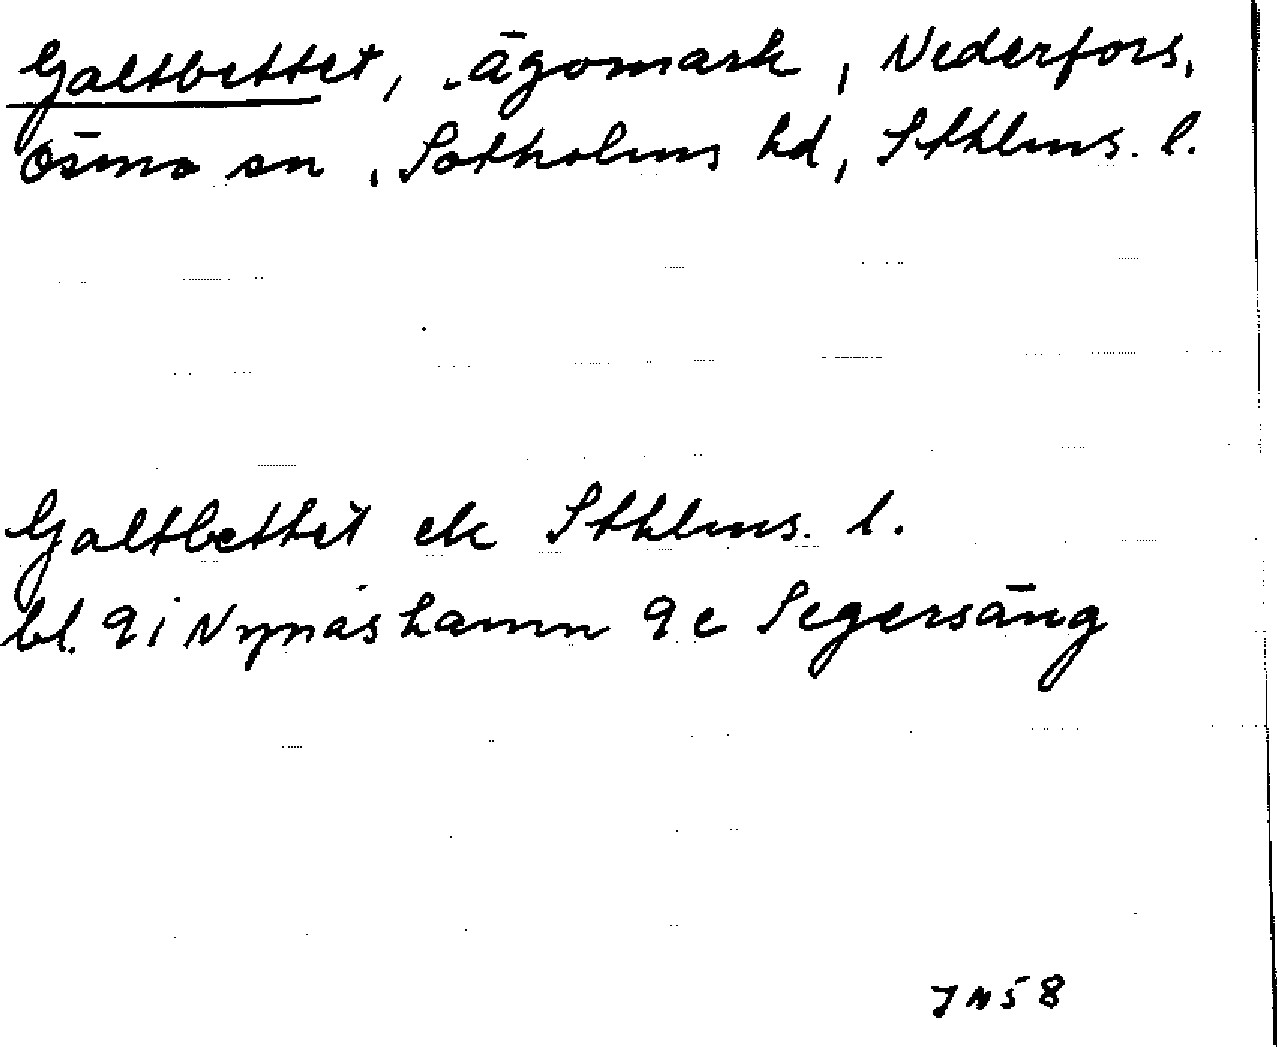 Galtbettet, ägomark, Nederfors,
Ösmo sn, Sotholms hd, Sthlms. l.
Galtbettet ek Sthlms. l.
bl. 9i Nynäshamn 9c Segersäng
JN58